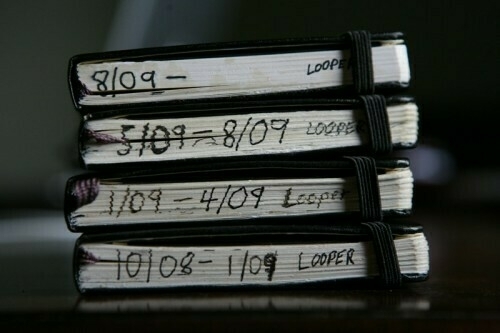 8/09 - LOOPER
5/09 - 8/09 LOOPER
1/09 - 4/09 LOOPER
10/08 - 1/09 LOOPER